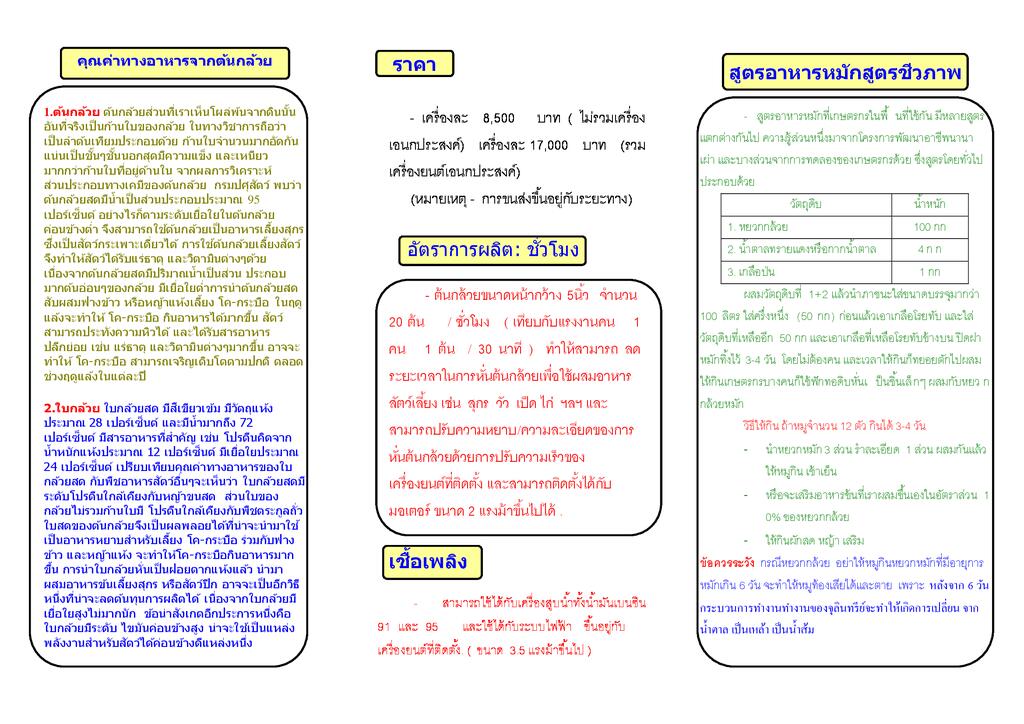 คุณค่าทางอาหารจากต้นกล้วย
1.ต้นกล้วย ต้นกล้วยส่วนที่เราเห็นโผล่พ้นจากดินนั้น
อันที่จริงเป็นก้านใบของกล้วย ในทางวิชาการถือว่า
เป็นลำต้นเทียมประกอบด้วย ก้านใบจำนวนมากอัดกัน
แน่นเป็นชั้นๆชั้นนอกสุดมีความแข็ง และเหนียว
มากกว่าก้านใบที่อยู่ด้านใน จากผลการวิเคราะห์
ส่วนประกอบทางเคมีของต้นกล้วย กรมปศุสัตว์ พบว่า
ต้นกล้วยสดมีน้ำเป็นส่วนประกอบประมาณ 95
เปอร์เซ็นต์ อย่างไรก็ตามระดับเยื่อใยในต้นกล้วย
ค่อนข้างต่ำ จึงสามารถใช้ต้นกล้วยเป็นอาหารเลี้ยงสุกร
ซึ่งเป็นสัตว์กระเพาะเดี่ยวได้ การใช้ต้นกล้วยเลี้ยงสัตว์
จึงทำให้สัตว์ได้รับแร่ธาตุ และวิตามินต่างๆด้วย
เนื่องจากต้นกล้วยสดมีปริมาณน้ำเป็นส่วน ประกอบ
มากต้นอ่อนๆของกล้วย มีเยื่อใยต่ำการนำต้นกล้วยสด
สับผสมฟางข้าว หรือหญ้าแห้งเลี้ยง โค-กระบือ ในฤดู
แล้งจะทำให้ โค-กระบือ กินอาหารได้มากขึ้น สัตว์
สามารถประทังความหิวได้ และได้รับสารอาหาร
ปลีกย่อย เช่น แร่ธาตุ และวิตามินต่างๆมากขึ้น อาจจะ
ทำให้ โค-กระบือ สามารถเจริญเติบโตตามปกติ ตลอด
ช่วงฤดูแล้งในแต่ละปี
2.ใบกล้วย ใบกล้วยสด มีสีเขียวเข้ม มีวัตถุแห้ง
ประมาณ 28 เปอร์เซ็นต์ และมีน้ำมากถึง 72
เปอร์เซ็นต์ มีสารอาหารที่สำคัญ เช่น โปรตีนคิดจาก
น้ำหนักแห้งประมาณ 12 เปอร์เซ็นต์ มีเยื่อใยประมาณ
24 เปอร์เซ็นต์ เปรียบเทียบคุณค่าทางอาหารของใบ
กล้วยสด กับพืชอาหารสัตว์อื่นๆจะเห็นว่า ใบกล้วยสดมี
ระดับโปรตีนใกล้เคียงกับหญ้าขนสด ส่วนใบของ
กล้วยไม่รวมก้านใบมี โปรตีนใกล้เคียงกับพืชตระกูลถั่ว
ใบสดของต้นกล้วยจึงเป็นผลพลอยได้ที่น่าจะนำมาใช้
เป็นอาหารหยาบสำหรับเลี้ยง โค-กระบือ ร่วมกับฟาง
ข้าว และหญ้าแห้ง จะทำให้โค-กระบือกินอาหารมาก
ขึ้น การนำใบกล้วยหั่นเป็นฝอยตากแห้งแล้ว นำมา
ผสมอาหารข้นเลี้ยงสุกร หรือสัตว์ปีก อาจจะเป็นอีกวิธี
หนึ่งที่น่าจะลดต้นทุนการผลิตได้ เนื่องจากใบกล้วยมี
เยื่อใยสูงไม่มากนัก ข้อน่าสังเกตอีกประการหนึ่งคือ
ใบกล้วยมีระดับ ไขมันค่อนข้างสูง น่าจะใช้เป็นแหล่ง
พลังงานสำหรับสัตว์ได้ค่อนข้างดีแหล่งหนึ่ง
ราคา
- เครื่องละ 8,500 บาท ( ไม่รวมเครื่อง
เอนกประสงค์) เครื่องละ 17,000 บาท (รวม
เครื่องยนต์เอนกประสงค์)
(หมายเหตุ - การขนส่งขึ้นอยู่กับระยะทาง)
อัตราการผลิต: ชั่วโมง
- ต้นกล้วยขนาดหน้ากว้าง 5นิ้ว จำนวน
20 ต้น / ชั่วโมง ( เทียบกับแรงงานคน 1
คน 1 ต้น / 30 นาที ) ทำให้สามารถ ลด
ระยะเวลาในการหั่นต้นกล้วยเพื่อใช้ผสมอาหาร
สัตว์เลี้ยง เช่น สุกร วัว เป็ด ไก่ ฯลฯ และ
สามารถปรับความหยาบ/ความละเอียดของการ
หั่นต้นกล้วยด้วยการปรับความเร็วของ
เครื่องยนต์ที่ติดตั้ง และสามารถติดตั้งได้กับ
มอเตอร์ ขนาด 2 แรงม้าขึ้นไปได้ .
เชื้อเพลิง
- สามารถใช้ได้กับเครื่องสูบน้ำทั้งน้ำมันเบนซิน
91 และ 95 และใช้ได้กับระบบไฟฟ้า ขึ้นอยู่กับ
เครื่องยนต์ที่ติดตั้ง. ( ขนาด 3.5 แรงม้าขึ้นไป )
สูตรอาหารหมักสูตรชีวภาพ
- สูตรอาหารหมักที่เกษตรกรในพื้ นที่ใช้กัน มีหลายสูตร
แตกต่างกันไป ความรู้ส่วนหนึ่งมาจากโครงการพัฒนาอาชีพนานา
เผ่า และบางส่วนจากการทดลองของเกษตรกรด้วย ซึ่งสูตรโดยทั่วไป
ประกอบด้วย
วัตถุดิบ น้ำหนัก
1. หยวกกล้วย 100 กก
2. น้ำตาลทรายแดงหรือกากน้ำตาล 4 ก ก
3. เกลือป่น 1 กก
ผสมวัตถุดิบที่ 1+2 แล้วนำภาชนะใส่ขนาดบรรจุมากว่า
100 ลิตร ใส่ครึ่งหนึ่ง (50 กก) ก่อนแล้วเอาเกลือโรยทับ และใส่
วัตถุดิบที่เหลืออีก 50 กก และเอาเกลือที่เหลือโรยทับข้างบน ปิดฝา
หมักทิ้งไว้ 3-4 วัน โดยไม่ต้องคน และเวลาให้กินก็ทยอยตักไปผสม
ให้กินเกษตรกรบางคนก็ใช้ฟักทอดิบหั่น เป็นชิ้นเล็กๆ ผสมกับหยว ก
กล้วยหมัก
วิธีให้กิน ถ้าหมูจำนวน 12 ตัว กินได้ 3-4 วัน
- นำหยวกหมัก 3 ส่วน รำละเอียด 1 ส่วน ผสมกันแล้ว
ให้หมูกิน เช้าเย็น
- หรือจะเสริมอาหารข้นที่เราผสมขึ้นเองในอัตราส่วน 1
0% ของหยวกกล้วย
- ให้กินผักสด หญ้า เสริม
ข้อควรระวัง กรณีหยวกกล้วย อย่าให้หมูกินหยวกหมักที่มีอายุการ
หมักเกิน 6 วัน จะทำให้หมูท้องเสียได้และตาย เพราะ หลังจาก 6 วัน
กระบวนการทำงานทำงานของจุลินทรีย์จะทำให้เกิดการเปลี่ยน จาก
น้ำตาล เป็นเหล้า เป็นน้ำส้ม